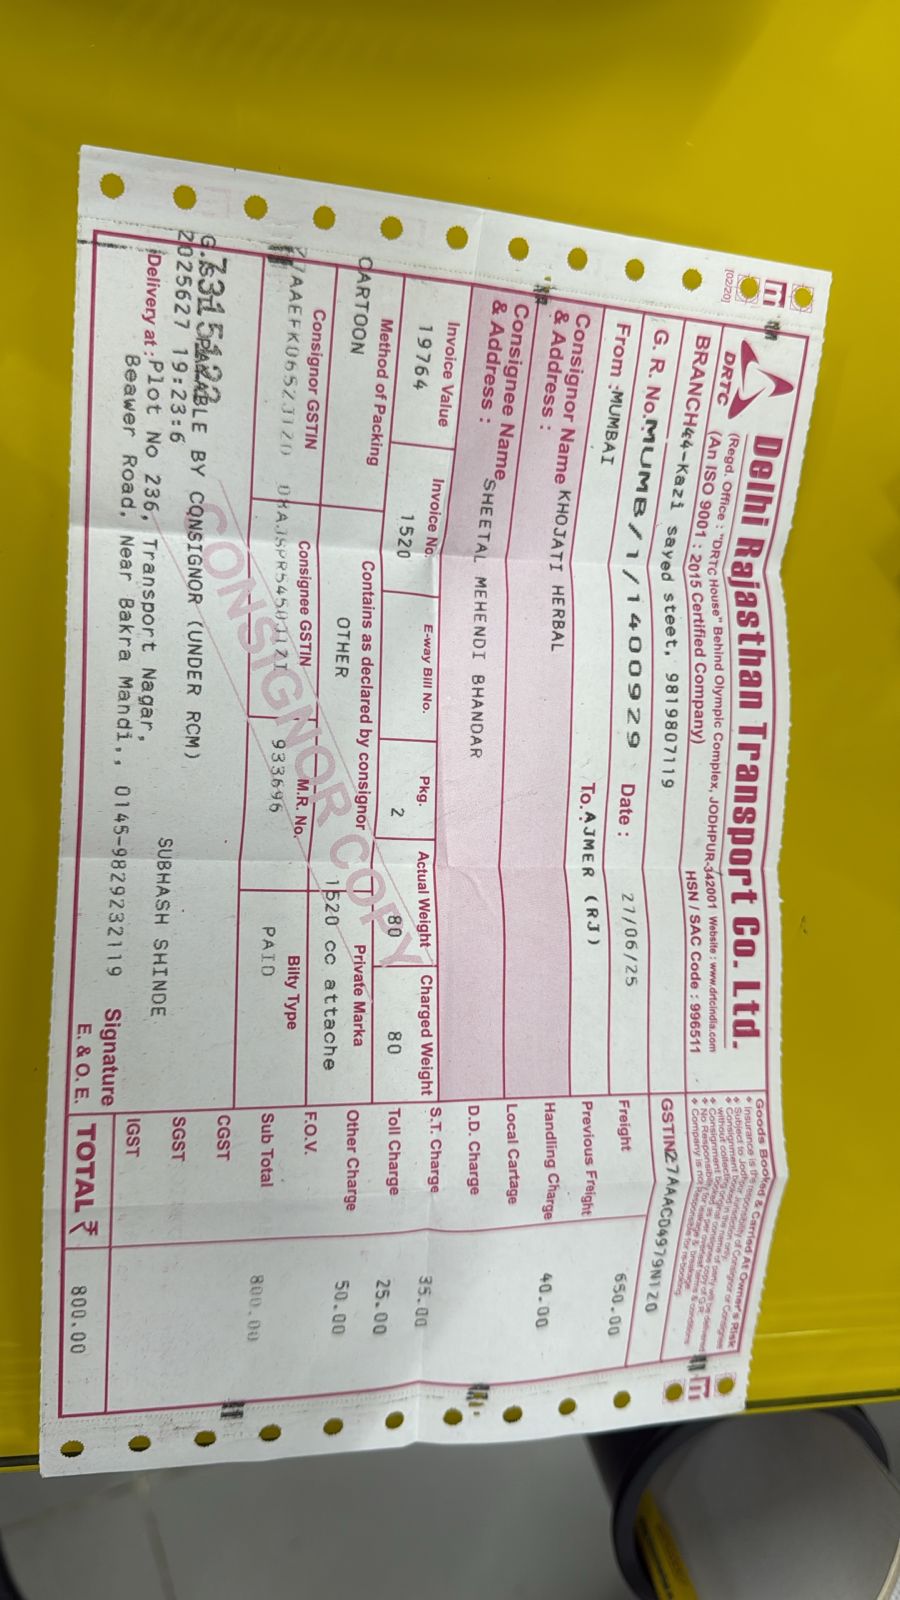 DRTC
Delhi Rajasthan Transport Co. Ltd.
(Regd. Office : "DRTC House" Behind Olympic Complex, JODHPUR-342001 Website : www.drtcindia.com
(An ISO 9001 : 2015 Certified Company)
HSN / SAC Code : 996511
BRANCH44-Kazi sayed steet, 9819807119
[02/20]
Goods Booked & Carried At Owner's Risk
Insurance is the responsibility of Consignor or Consignee
Subject to Jodhpur Jurisdiction only.
GSTIN27AAACD4979N1ZO
G. R. No. MUMB/1/140929 Date : 27/06/25
From :MUMBAI To. AJMER (RJ)
Consignor Name KHOJATI HERBAL
& Address :
Consignee Name SHEETAL MEHENDI BHANDAR
& Address :
Invoice Value Invoice No. E-way Bill No. Pkg. Actual Weight Charged Weight
19764 1520 2 80 80
Method of Packing Contains as declared by consignor Private Marka
CARTOON OTHER 1520 cc attache
Consignor GSTIN Consignee GSTIN M.R. No. Bilty Type
933696 PAID
CONSIGNOR COPY
Freight 650.00
Previous Freight
Handling Charge 40.00
Local Cartage
D.D. Charge
S.T. Charge 35.00
Toll Charge 25.00
Other Charge 50.00
F.O.V.
Sub Total 800.00
CGST
SGST
IGST
TOTAL ₹ 800.00
7315122
BY CONSIGNOR (UNDER RCM)
2025627 19:23:6
SUBHASH SHINDE
Delivery at : Plot No 236, Transport Nagar,
Beawer Road, Near Bakra Mandi,, 0145-9829232119
Signature
E. & O. E.